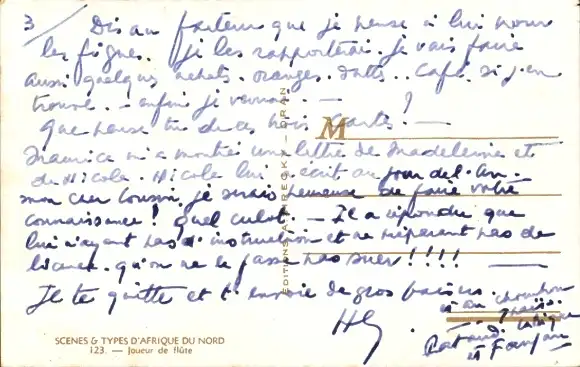 3/ Dis au facteur que je pense à lui pour
les figues. Je les rapporterai. Je vais faire
aussi quelques achats. oranges. dattes.. café si j'en
trouve. - enfin je verrai. -
que penses tu de ces trois cartes ? -
Maurice m'a montré une lettre de Madeleine et
de Nicole. Nicole lui écrit au jour de l'An.
mon cher cousin, je serais heureuse de faire votre
connaissance ! quel culot. - Il a répondu que
lui n'ayant pas d'instruction et ne préparant pas de
licence. qu'on ne le fasse pas suer !!!!
Je te quitte et t'envoie de gros baisers.
et au
et
M
EDITIONS ORAN
SCENES & TYPES D'AFRIQUE DU NORD
123. — Joueur de flûte